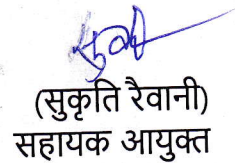 (सुकृति रैवानी)
सहायक आयुक्त